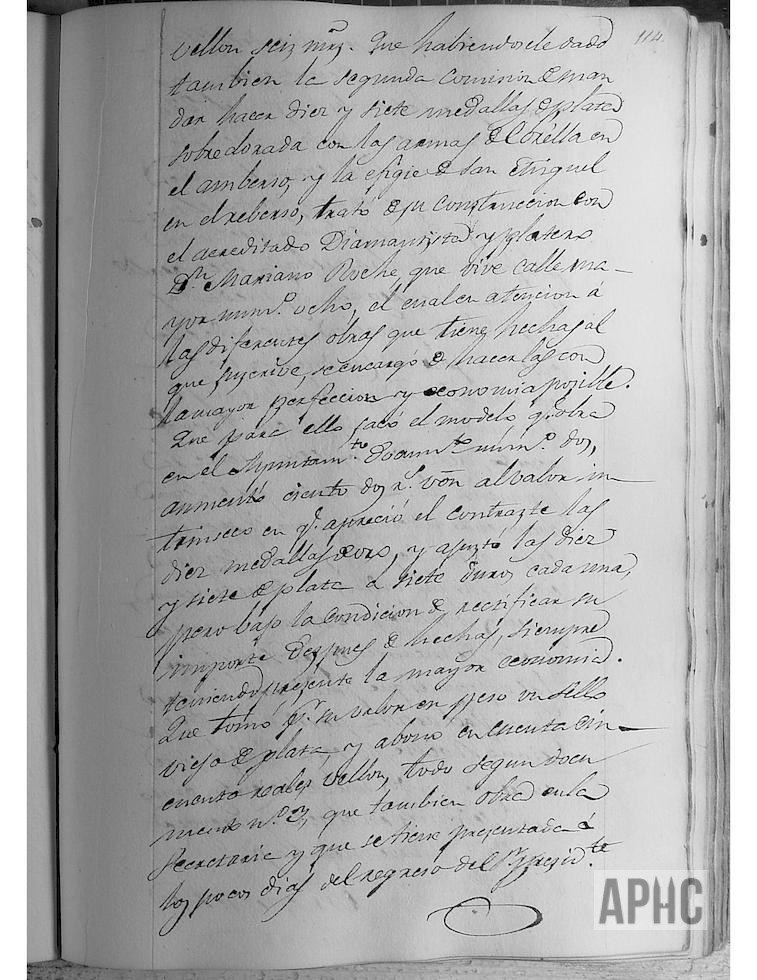 114
vellon seiz mrs. Que habiendosele dado
tambien la segunda comision de man
dar hacer diez y siete medallas de plata
sobredorada con las armas de Corella en
el amberso, y la efigie de San Miguel
en el reberso, trató de su construccion con
el acreditado Diamantista y platero
Dn. Mariano Roche que vive calle ma-
yor numo. ocho, el cual en atencion á
las diferentes obras que tiene hechas al
que suscrive, se encargó de hacerlas con
la mayor perfeccion y economia posible.
Que para ello sacó el modelo q. obra
en el Ayuntamto. Documto. numo. dos,
aumentó ciento dos rs. von al valor in-
trinseco en q. apreció el contraste las
diez medallas de oro, y ajustó las diez
y siete de plata a siete duros cada una,
pero bajo la condicion de rectificar su
importe despues de hechas, siempre
teniendo presente la mayor economia.
Que tomó pr. su valor en peso un sello
viejo de plata, y abonó en cuenta cin-
cuenta reales vellon, todo segun docu
mento no. 3, que tambien obra en la
Secretaria y que se tiene presentada á
los pocos dias del regreso del Sr. Presidte.
APHC